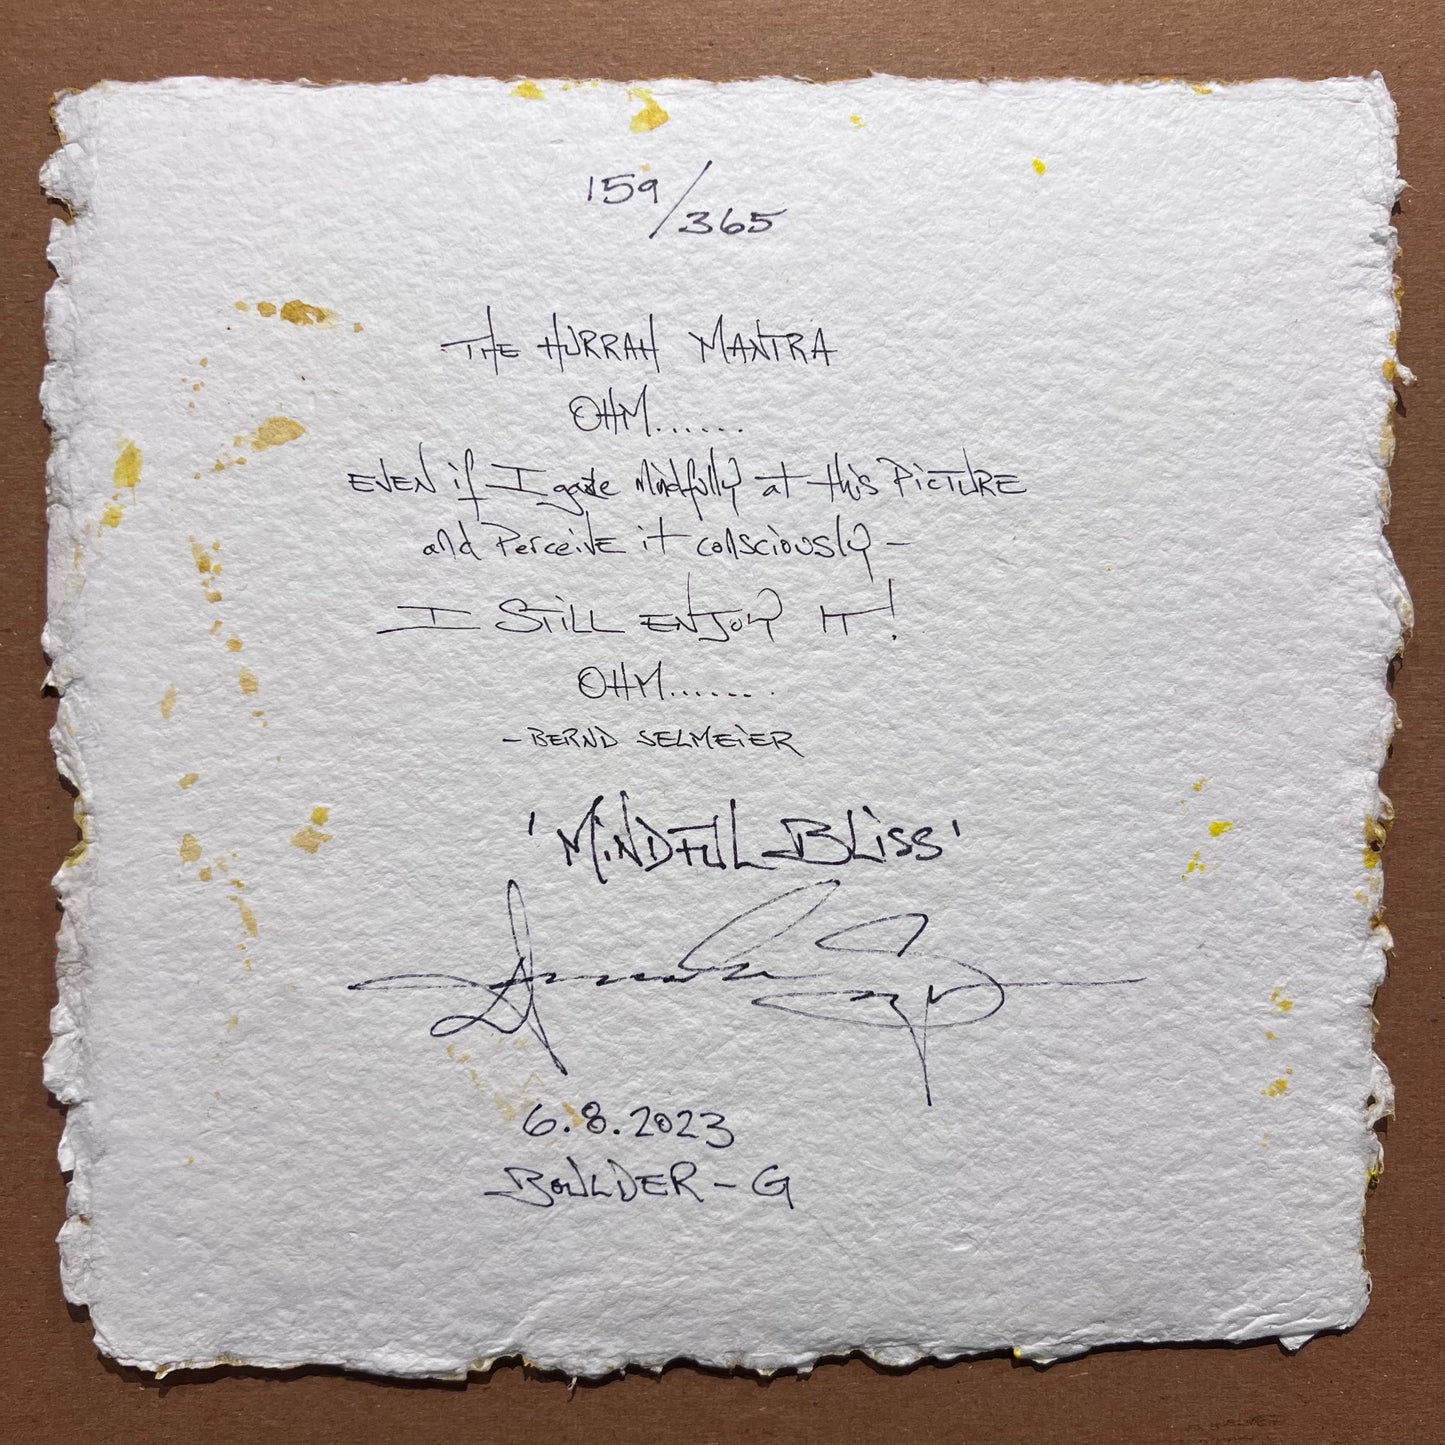 159/365
THE HURRAH MANTRA
OHM......
EVEN if I gaze Mindfully at this PICTURE
and Perceive it consciously -
I STILL ENJOY IT!
OHM.......
- BERND SELMEIER
'MINDFUL BLISS'
6.8.2023
BOULDER - G